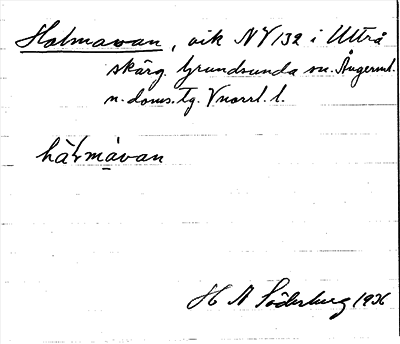 Halmavan, vik NY 132 i Utterå
skärg. Grundsunda sn. Ångerml.
n. doms. tg. Vnorrl. l.
hàʟmàvan
H N Söderberg 1936